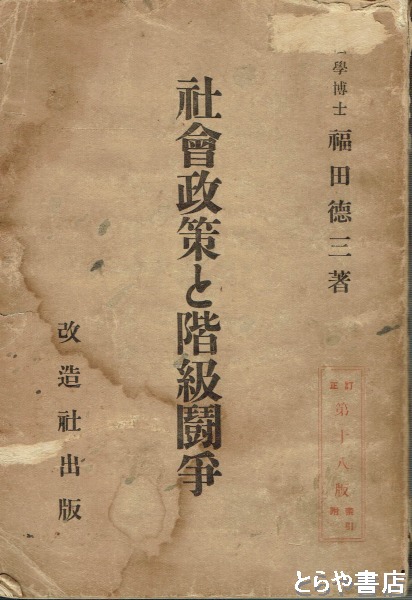 學博士 福田德三著
社會政策と階級鬪爭
改造社出版
訂正
第十八版
索引附
とらや書店